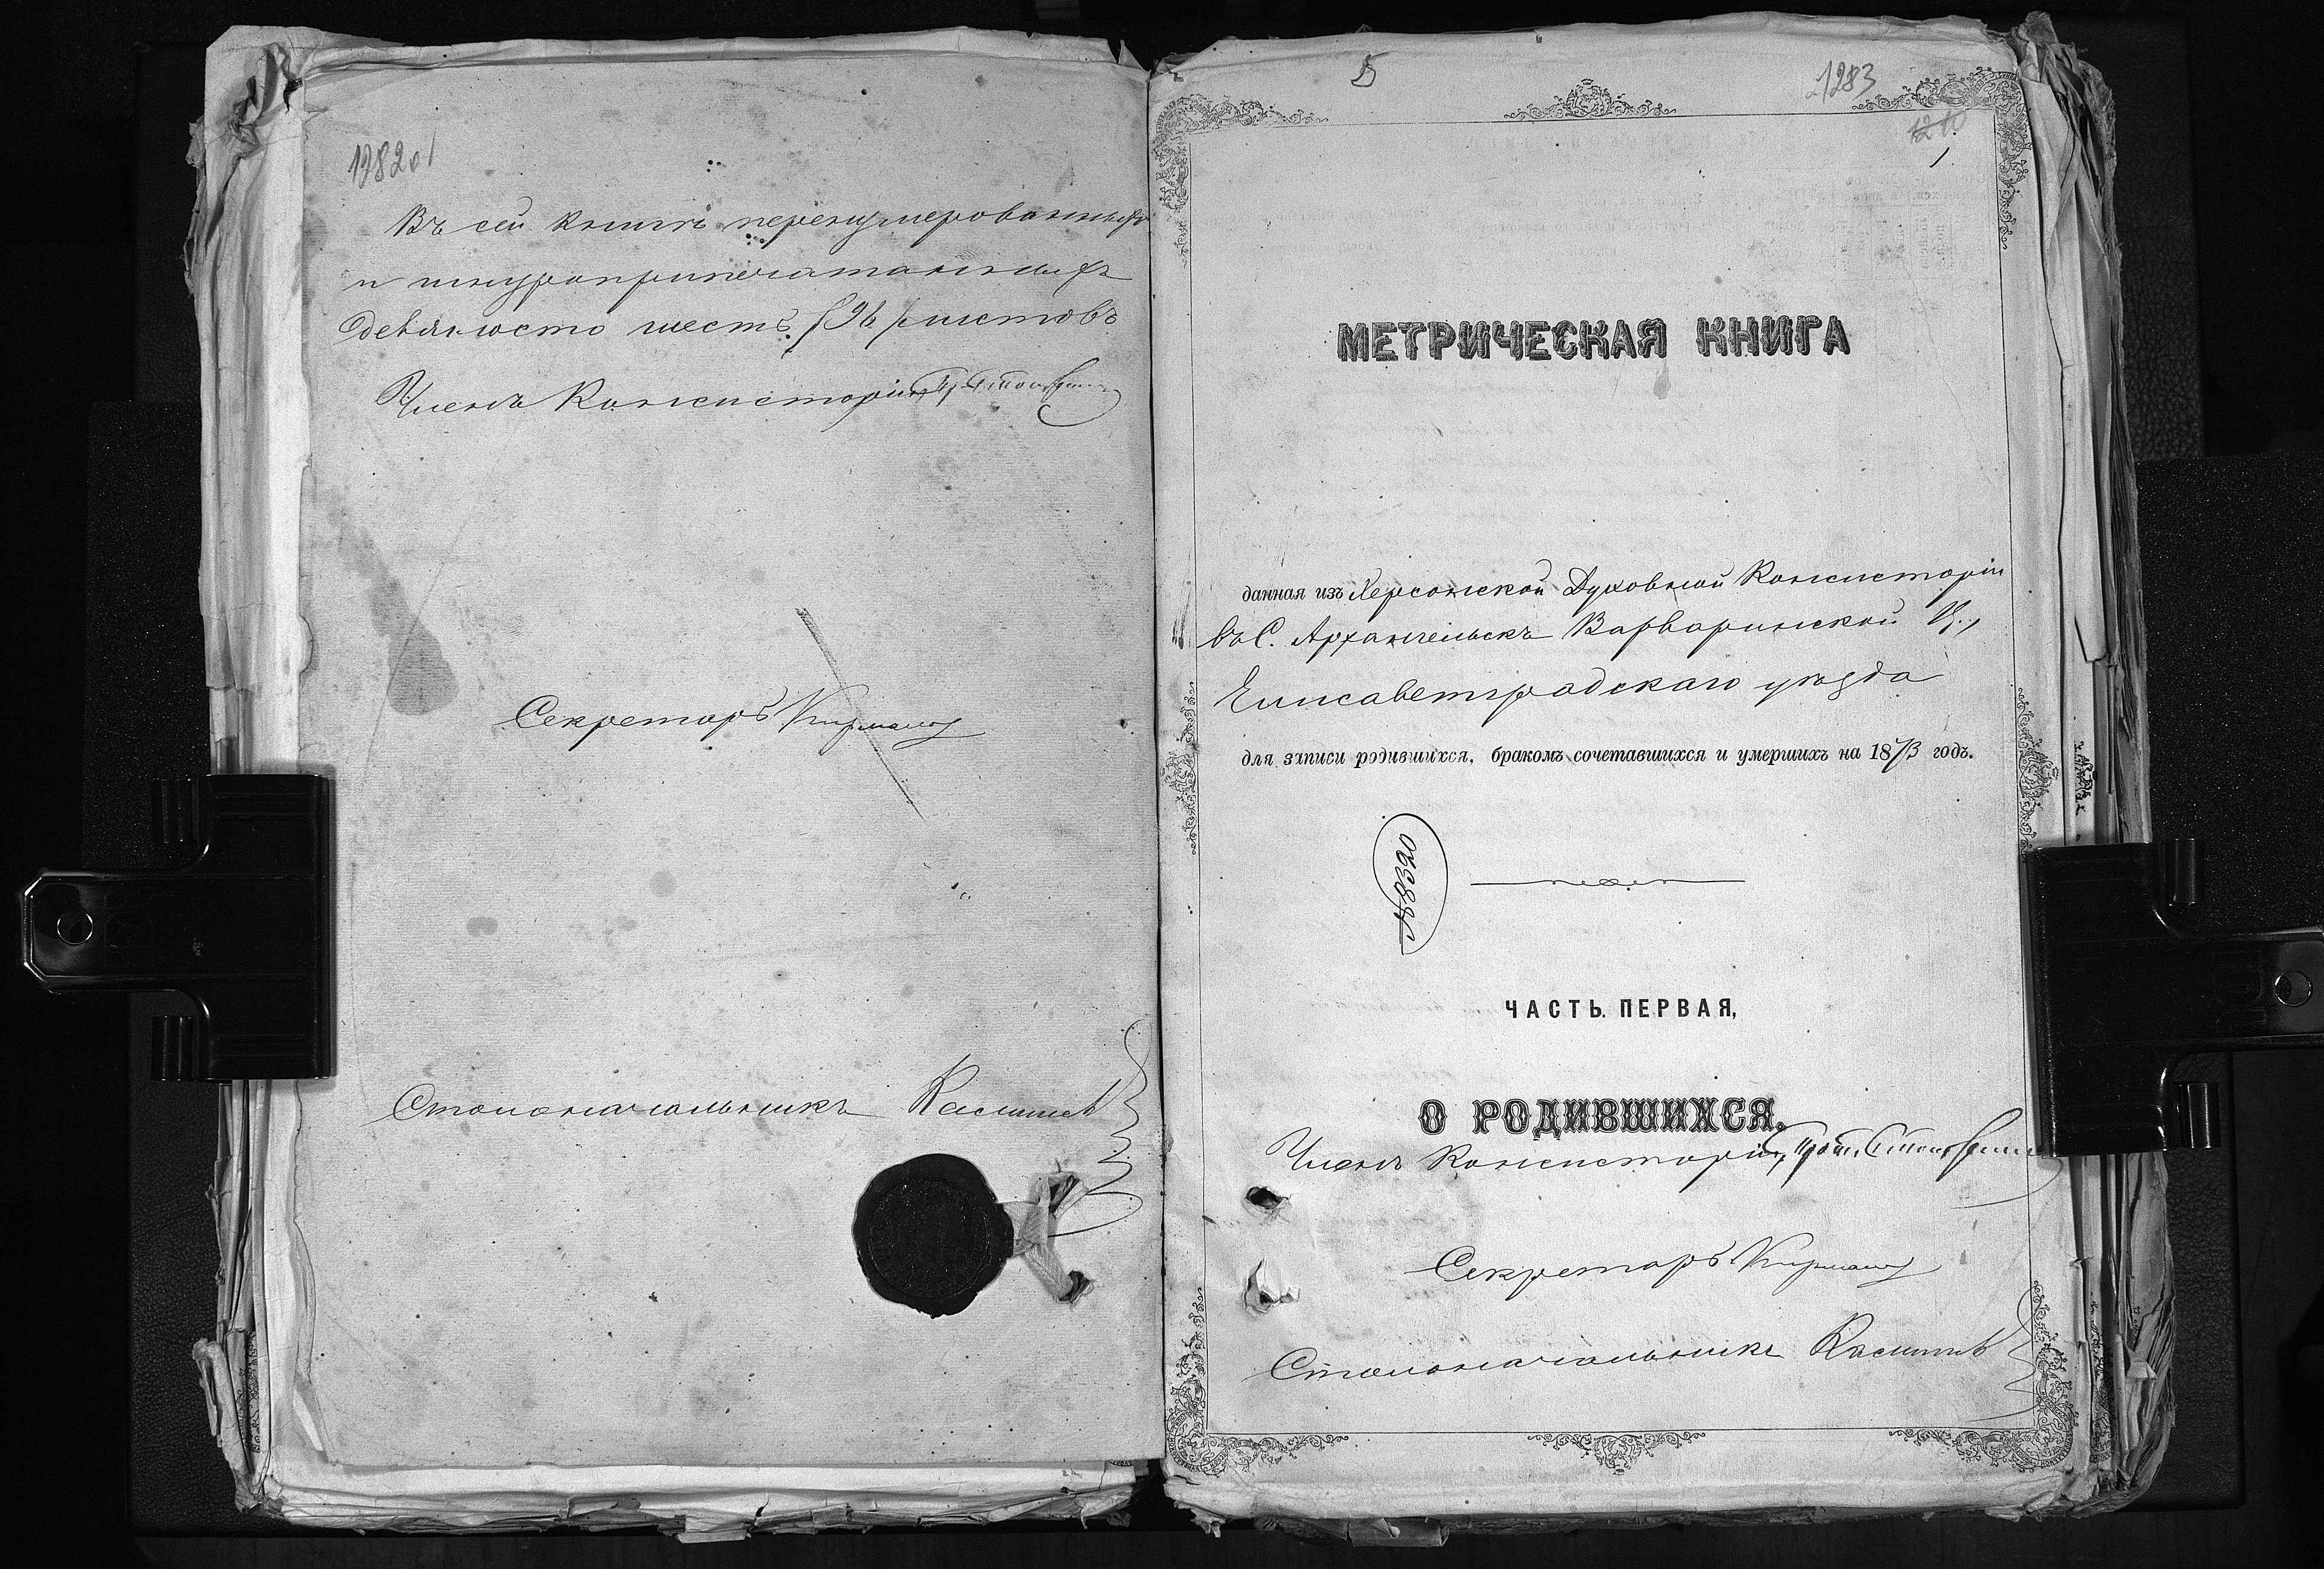 1282 об
Въ сей книгѣ перенумерованныхъ
и шнуроприпечатанныхъ
девяносто шесть /96/ листовъ
Членъ Консисторіи
Секретарь
Столоначальникъ
5
1283
1210
1.
МЕТРИЧЕСКАЯ КНИГА
данная изъ Херсонской Духовной Консисторіи
въ С. Архангельскъ Варваринской Ц.,
Елисаветградскаго уѣзда
для записи родившихся, бракомъ сочетавшихся и умершихъ на 1873 годъ.
№ 8390
ЧАСТЬ ПЕРВАЯ,
О РОДИВШИХСЯ.
Членъ Консисторіи, Прот.
Секретарь
Столоначальникъ